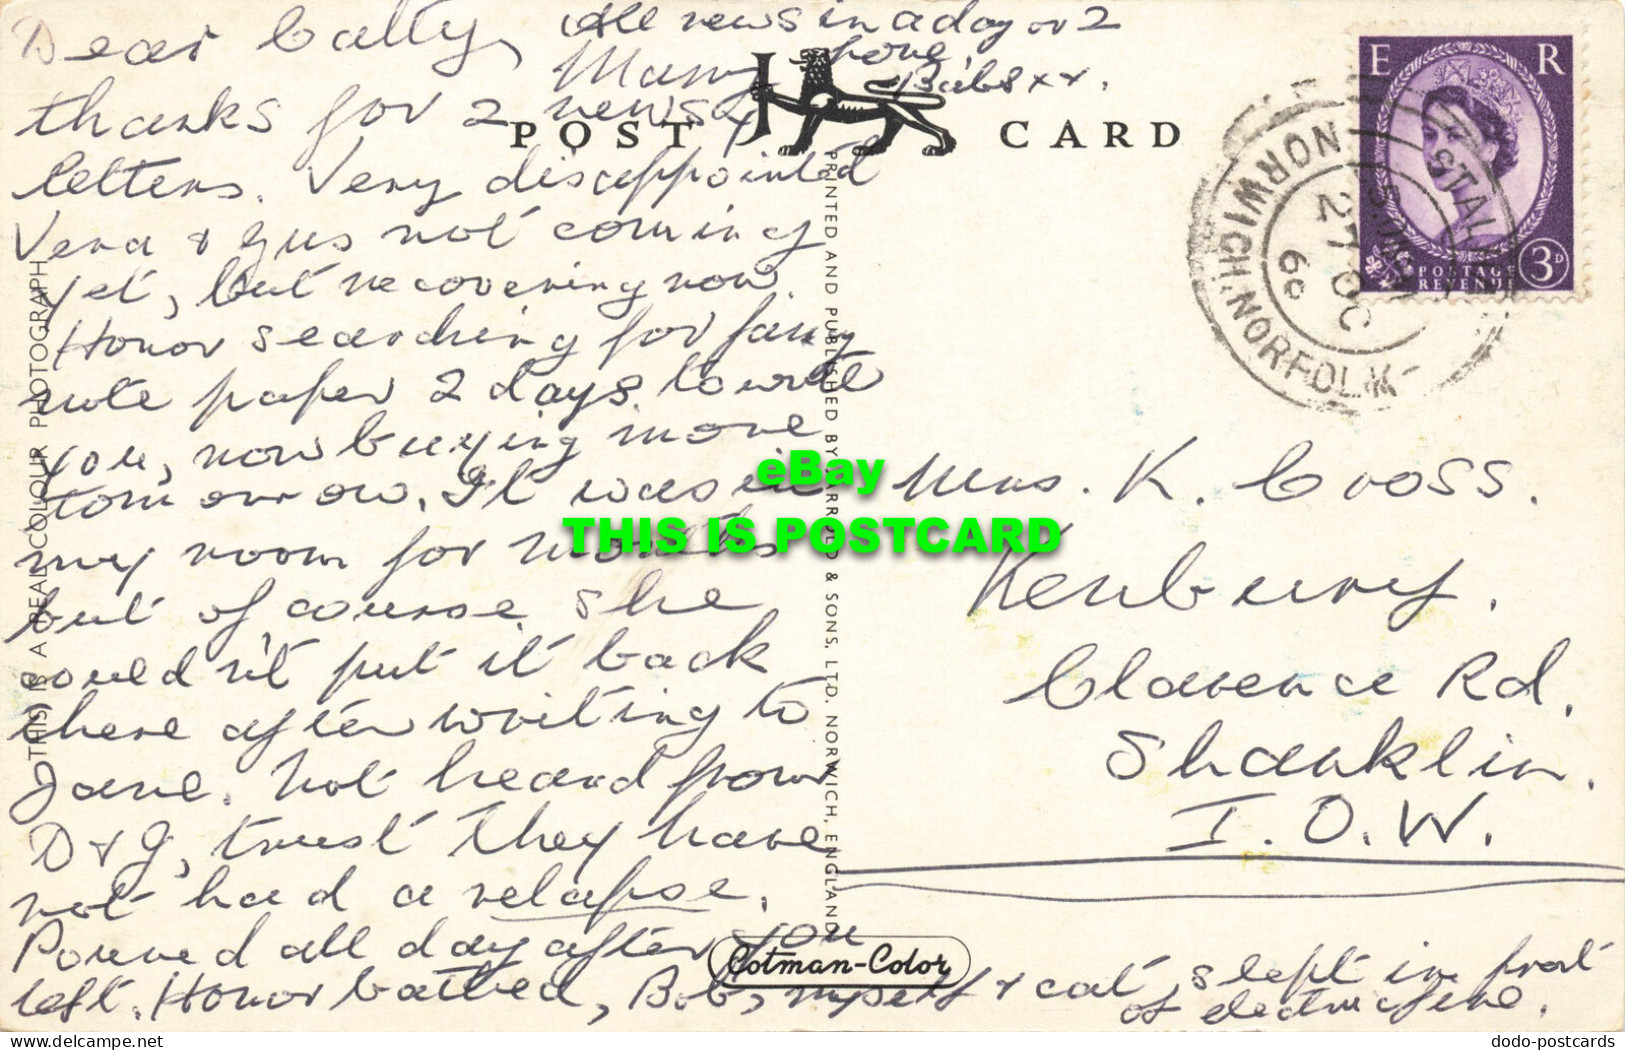 Dear Catty,
Many
thanks for 2 newsy
letters. Very disappointed
Vera & Gus not coming
yet, but recovering now.
Honor searching for fancy
note paper 2 days to write
you, now buying more
tomorrow. It was in
my room for months
but of course she
couldn't put it back
there after writing to
Jane. Not heard from
D & G, trust they have
not had a relapse.
Poured all day after you
left. Honor bathed, Bob, myself & cat, slept in front
of electric fire.
All news in a day or 2
love
Babs xx.
POST CARD
PRINTED AND PUBLISHED BY JARROLD & SONS, LTD. NORWICH, ENGLAND
THIS IS A REAL COLOUR PHOTOGRAPH
Cotman-Color
E R
POSTAGE
REVENUE
3D
NORWICH. NORFOLK
27 OC
66
Mrs. K. Cross.
Kenbury.
Clarence Rd.
Shanklin.
I.O.W.
eBay
THIS IS POSTCARD
dodo-postcards